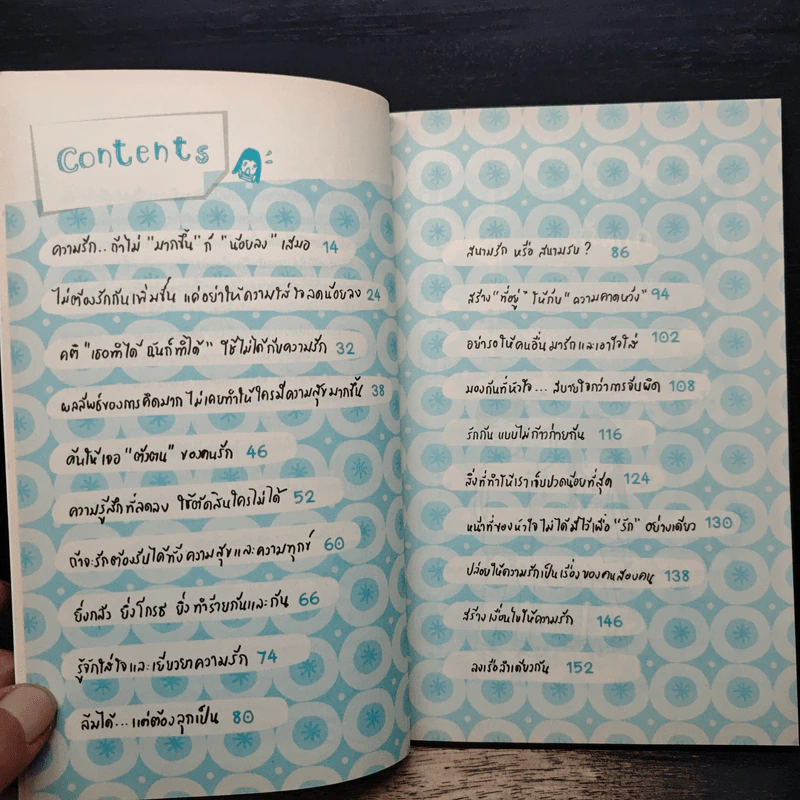 Contents
ความรัก.. ถ้าไม่ "มากขึ้น" ก็ "น้อยลง" เสมอ 14
ไม่ต้องรักกันเพิ่มขึ้น แค่อย่าให้ความใส่ใจลดน้อยลง 24
คติ "เธอทำได้ ฉันก็ทำได้" ใช้ไม่ได้กับความรัก 32
ผลลัพธ์ของการคิดมาก ไม่เคยทำให้ใครมีความสุขมากขึ้น 38
ค้นให้เจอ "ตัวตน" ของคนรัก 46
ความรู้สึกที่ลดลง ใช้ตัดสินใครไม่ได้ 52
ถ้าจะรักต้องรับได้ทั้งความสุขและความทุกข์ 60
ยิ่งกลัว ยิ่งโกรธ ยิ่งทำร้ายกันและกัน 66
รู้จักใส่ใจและเยียวยาความรัก 74
ล้มได้... แต่ต้องลุกเป็น 80
สนามรัก หรือ สนามรบ ? 86
สร้าง "ที่อยู่" ให้กับ "ความคาดหวัง" 94
อย่ารอให้คนอื่นมารักและเอาใจใส่ 102
มองกันที่หัวใจ... สบายใจกว่าการจับผิด 108
รักกัน แบบไม่ก้าวก่ายกัน 116
สิ่งที่ทำให้เราเจ็บปวดน้อยที่สุด 124
หน้าที่ของหัวใจ ไม่ได้มีไว้เพื่อ "รัก" อย่างเดียว 130
ปล่อยให้ความรักเป็นเรื่องของคนสองคน 138
สร้างเงื่อนไขให้ความรัก 146
ลงเรือลำเดียวกัน 152